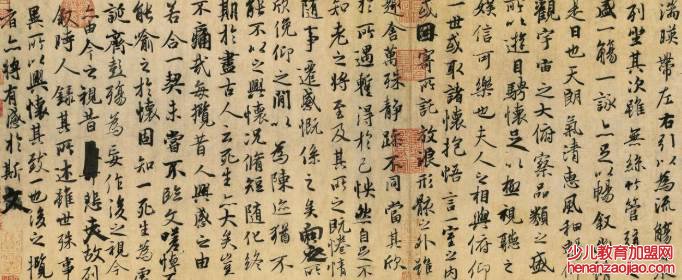 湍暎帶左右引以為流觴
列坐其次雖無絲竹管弦
盛一觴一詠亦足以暢敘
是日也天朗氣清惠風和
觀宇宙之大俯察品類之盛
所以遊目騁懷足以極視聽之
娛信可樂也夫人之相與俯仰
一世或取諸懷抱悟言一室之內
或因寄所託放浪形骸之外雖
趣舍萬殊靜躁不同當其欣
於所遇蹔得於己怏然自足不
知老之將至及其所之既惓情
隨事遷感慨係之矣向之所
欣俛仰之閒以為陳迹猶不
能不以之興懷況脩短隨化終
期於盡古人云死生亦大矣豈
不痛哉每攬昔人興感之由
若合一契未嘗不臨文嗟悼
能喻之於懷固知一死生為虛
誕齊彭殤為妄作後之視今
亦由今之視昔悲夫故列
敘時人錄其所述雖世殊事
異所以興懷其致一也後之攬
者亦將有感於斯文
少儿教育加盟网
henanzaojiao.com